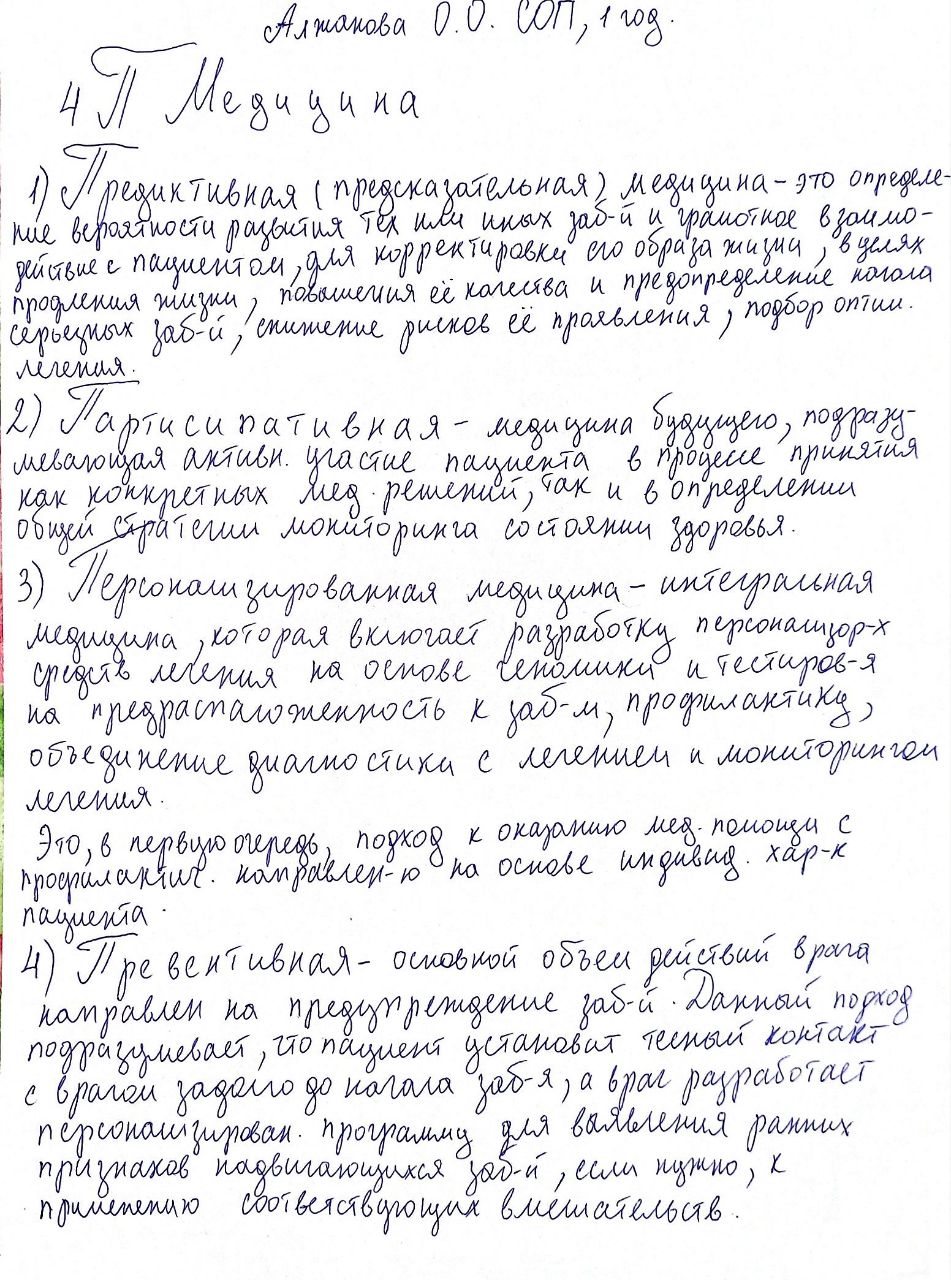 Алжанова О.О. СОП, 1 год.
4П Медицина
1) Предиктивная (предсказательная) медицина – это определе-
ние вероятности развития тех или иных заб-й и грамотное взаимо-
действие с пациентом, для корректировки его образа жизни, в целях
продления жизни, повышения её качества и предопределение начала
серьезных заб-й, снижение рисков её проявления, подбор оптим.
лечения.
2) Партисипативная – медицина будущего, подразу-
мевающая активн. участие пациента в процессе принятия
как конкретных мед. решений, так и в определении
общей стратегии мониторинга состоянии здоровья.
3) Персонализированная медицина – интегральная
медицина, которая включает разработку персонализир-х
средств лечения на основе геномики и тестиров-я
на предрасположенность к заб-м, профилактику,
объединение диагностики с лечением и мониторингом
лечения.
Это, в первую очередь, подход к оказанию мед. помощи с
профилактич. направлен-ю на основе индивид. хар-к
пациента.
4) Превентивная – основной объем действий врача
направлен на предупреждение заб-й. Данный подход
подразумевает, что пациент установит тесный контакт
с врачом задолго до начала заб-я, а врач разработает
персонализирован. программу для выявления ранних
признаков надвигающихся заб-й, если нужно, к
применению соответствующих вмешательств.